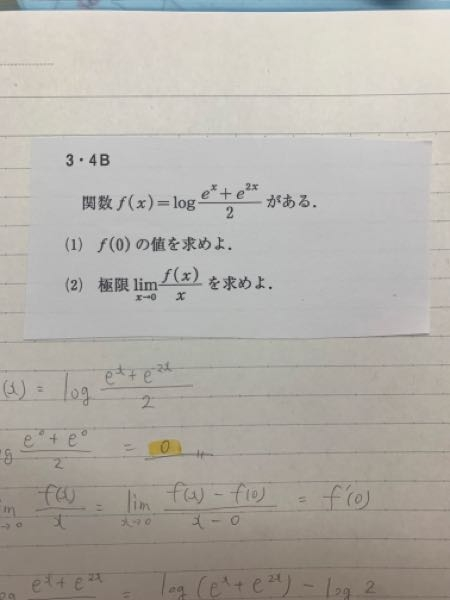 3・4B
関数 f(x)=log (e^x+e^{2x})/2 がある.
(1) f(0) の値を求めよ.
(2) 極限 lim_{x→0} f(x)/x を求めよ.
(x) = log (e^x+e^{-2x})/2
g (e^0+e^0)/2 = 0 〃
im_{x→0} f(x)/x = lim_{x→0} (f(x)-f(0))/(x-0) = f'(0)
og (e^x+e^{2x}) = log(e^x+e^{2x})-log 2